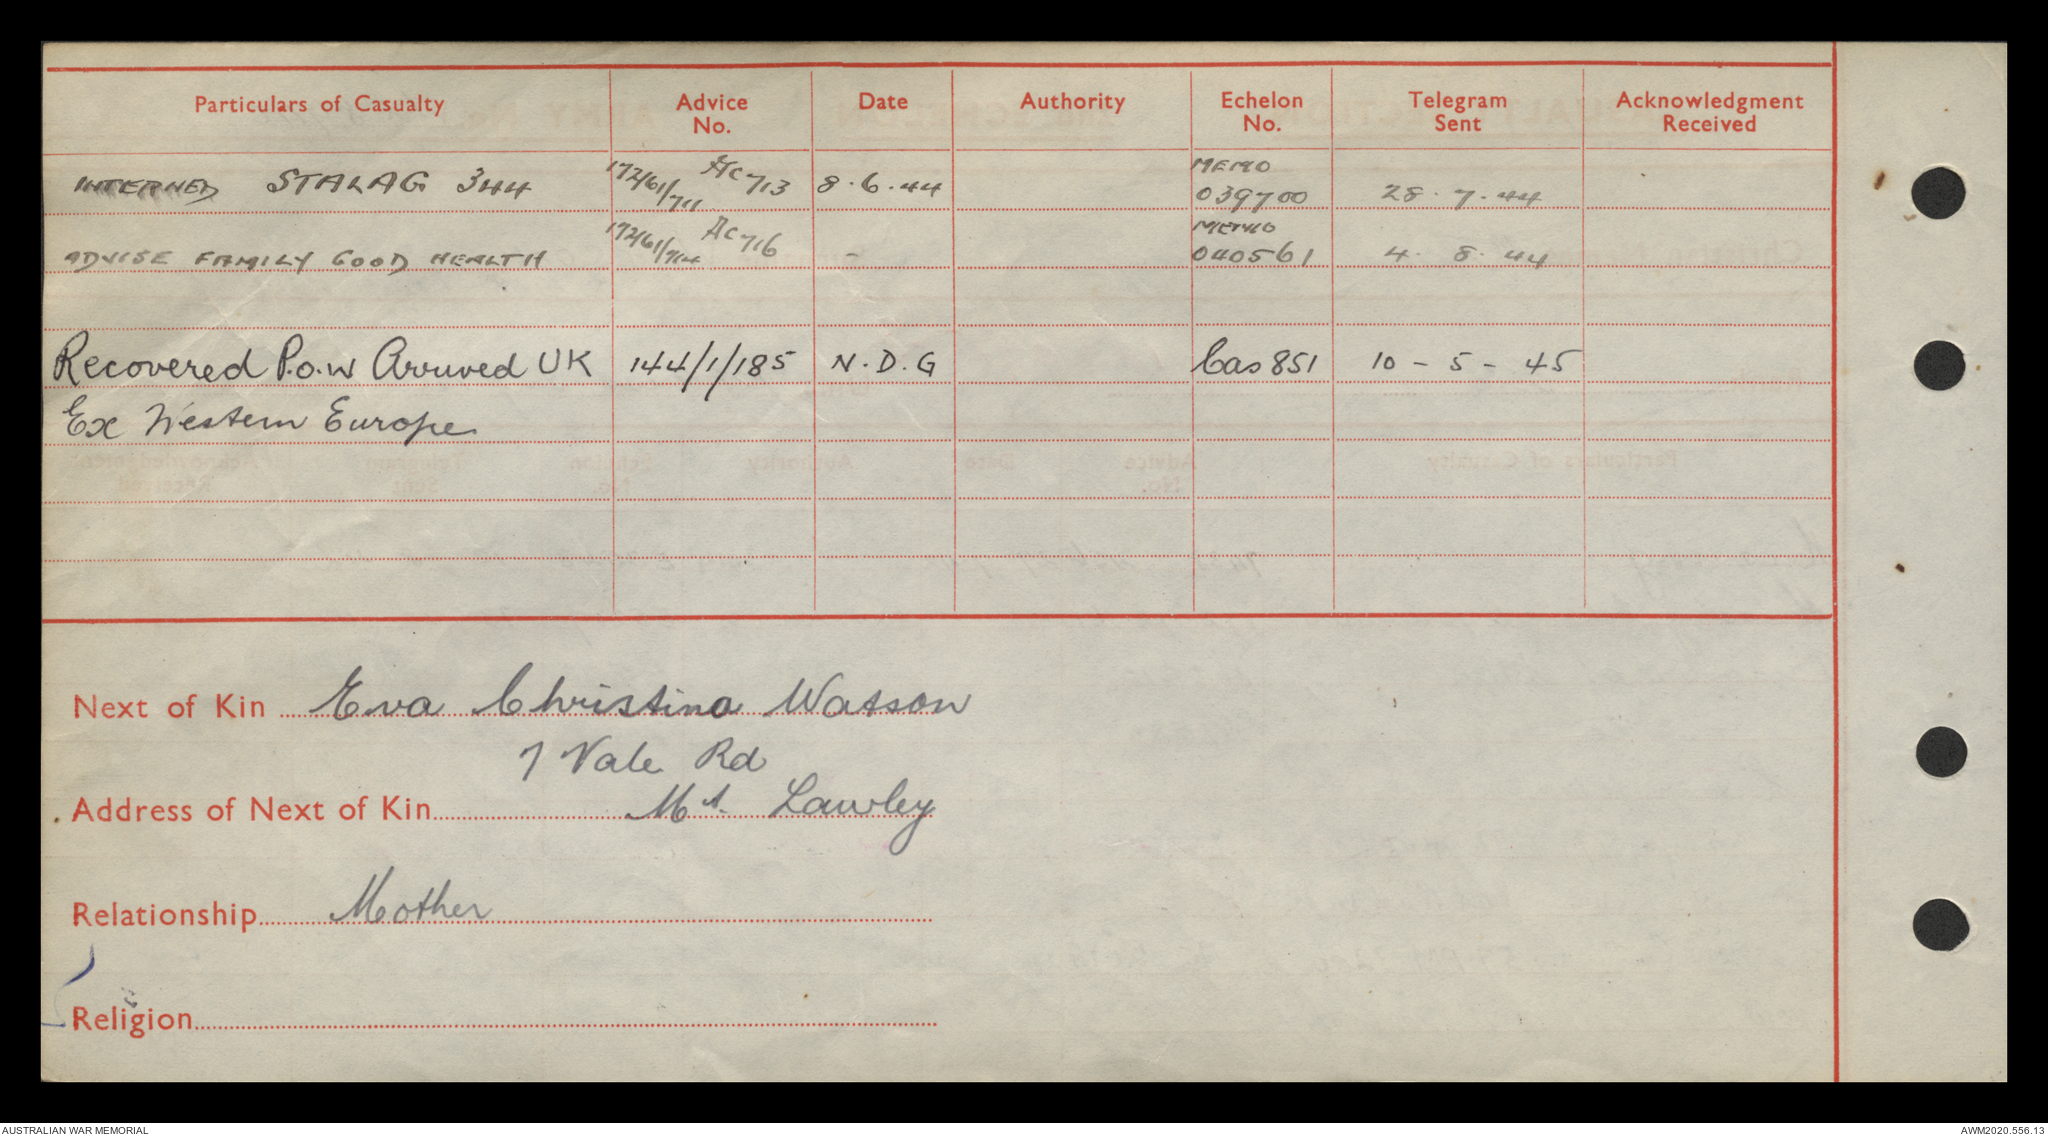 Particulars of Casualty Advice No. Date Authority Echelon No. Telegram Sent Acknowledgment Received
INTERNED STALAG 344 172/61/711 AC 713 8.6.44 MEMO 039700 28.7.44
ADVISE FAMILY GOOD HEALTH 172/61/714 AC 716 - MEMO 040561 4.8.44
Recovered P.o.w Arrived UK 144/1/185 N.D.G Cas 851 10-5-45
Ex Western Europe
Next of Kin Eva Christina Watson
7 Vale Rd
Address of Next of Kin Mt. Lawley
Relationship Mother
Religion
AUSTRALIAN WAR MEMORIAL AWM2020.556.13